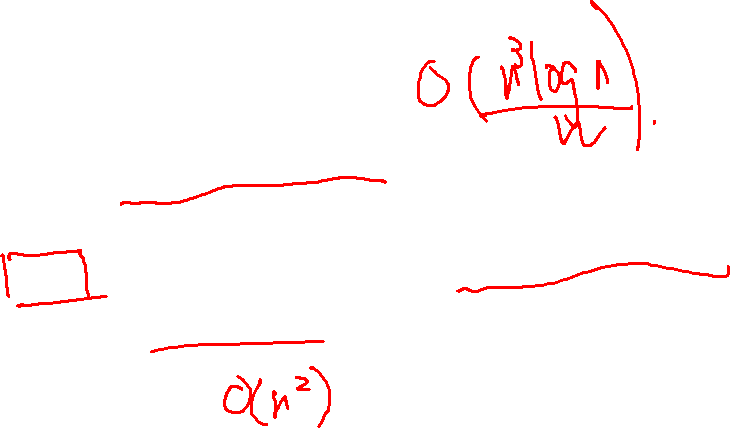 O(n³log n).
O(n²)